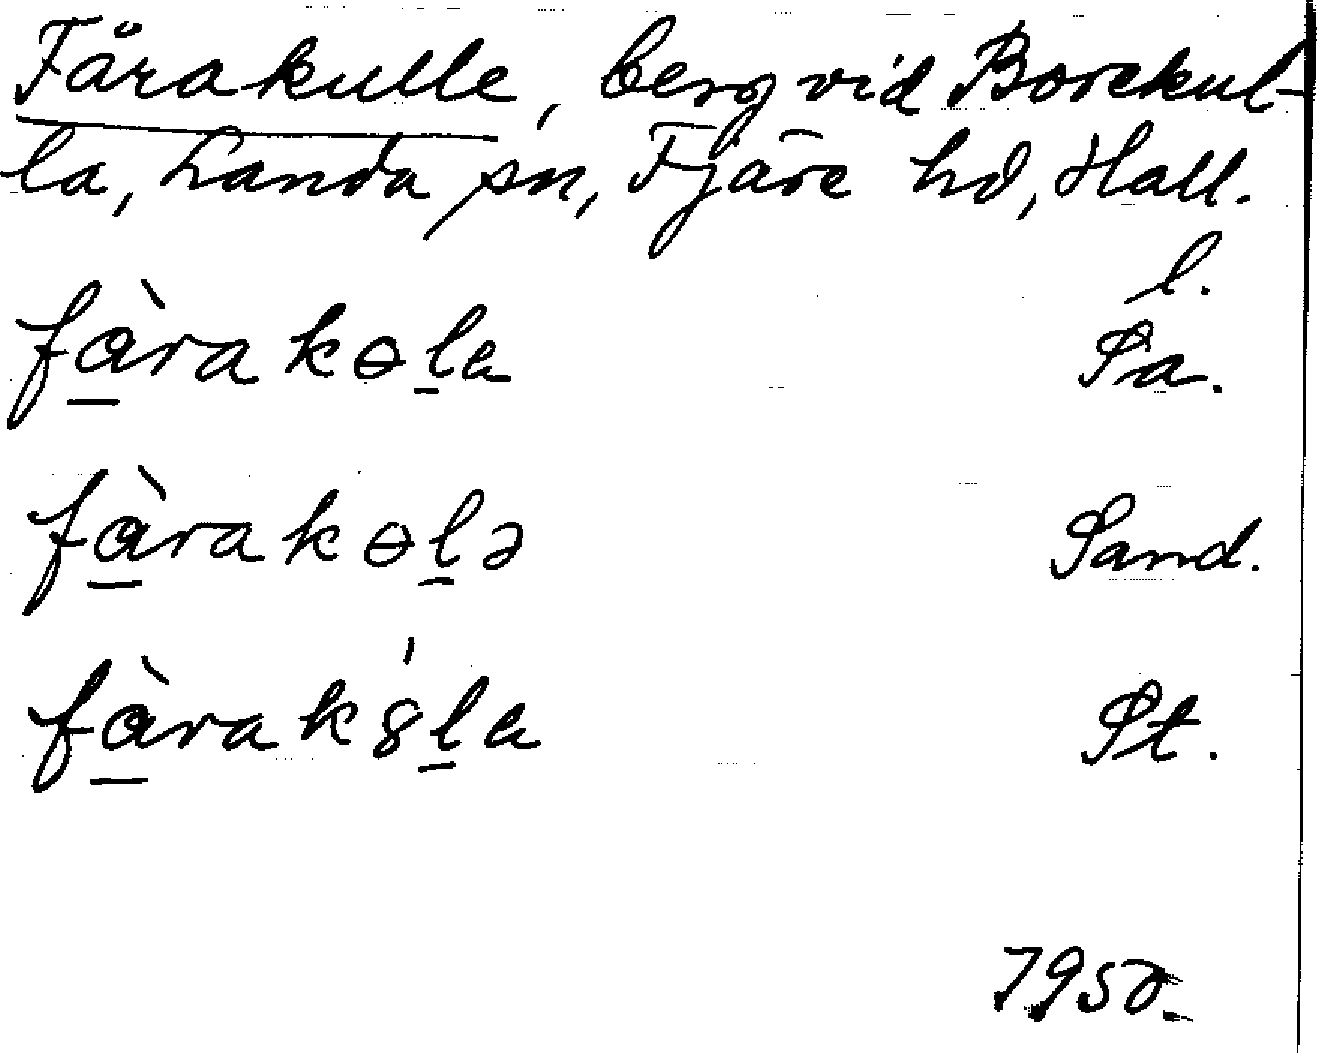 Fårakulle, berg vid Borekul-
la, Landa sn, Fjäre hd, Hall.
l.
fàrakɵla Sa.
fàrakɵlə Sand.
fàrak8́la St.
1950.